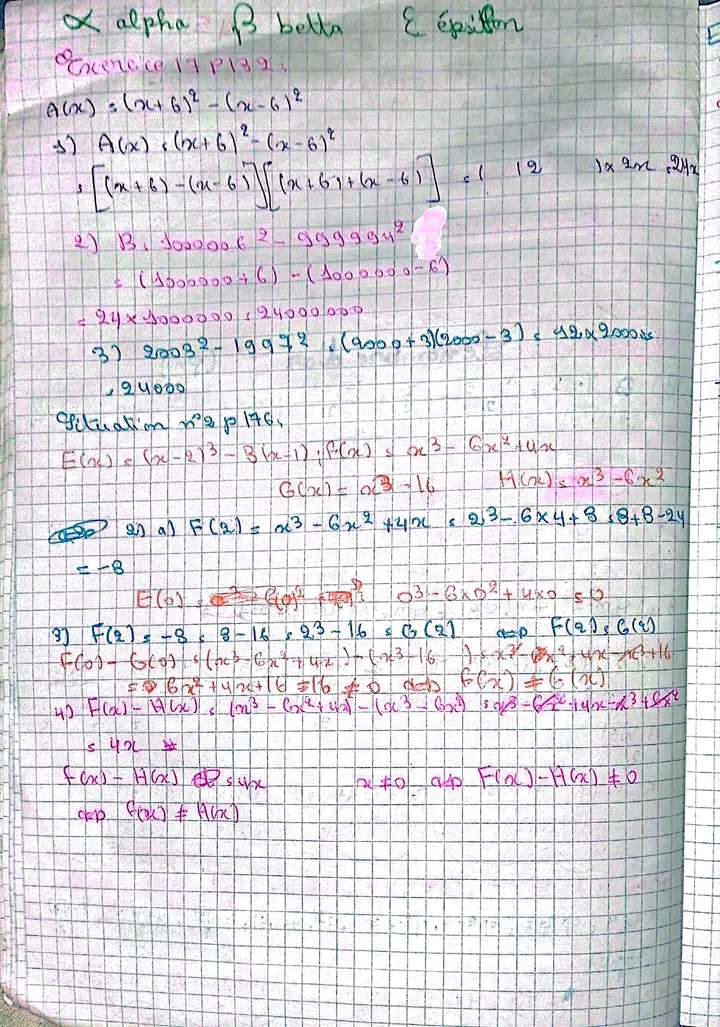 α alpha β betta ε épsilon
Exercice 17 P 139.
A(x) = (x+6)² - (x-6)²
1) A(x) = (x+6)² - (x-6)²
= [(x+6) - (x-6)][(x+6) + (x-6)] = ( 12 ) x 2x = 24x
2) B = 1000006² - 999994²
= (1000000+6) - (1000000-6)
= 24 x 1000000 = 24000000
3) 2003² - 1997² = (2000+3)(2000-3) = 12 x 2000 =
= 24000
Situation n°2 p 176.
E(x) = (x-2)³ - 8(x-1) ; F(x) = x³ - 6x² + 4x
G(x) = x³ - 16 H(x) = x³ - 6x²
2) a) F(2) = x³ - 6x² + 4x = 2³ - 6x4 + 8 = 8+8-24
= -8
E(0) = 0³ - 6x0² + 4x0 = 0
3) F(2) = -8 = 8-16 = 2³ - 16 = G(2) ⇔ F(2) = G(2)
F(0) - G(0) = (x³ - 6x² + 4x) - (x³ - 16 ) = x³ - 6x² + 4x - x³ + 16
= 6x² + 4x + 16 = 16 ≠ 0 ⇔ F(x) ≠ G(x)
4) F(x) - H(x) = (x³ - 6x² + 4x) - (x³ - 6x²) = x³ - 6x² + 4x - x³ + 6x²
= 4x
F(x) - H(x) = 4x x ≠ 0 ⇔ F(x) - H(x) ≠ 0
⇔ F(x) ≠ H(x)